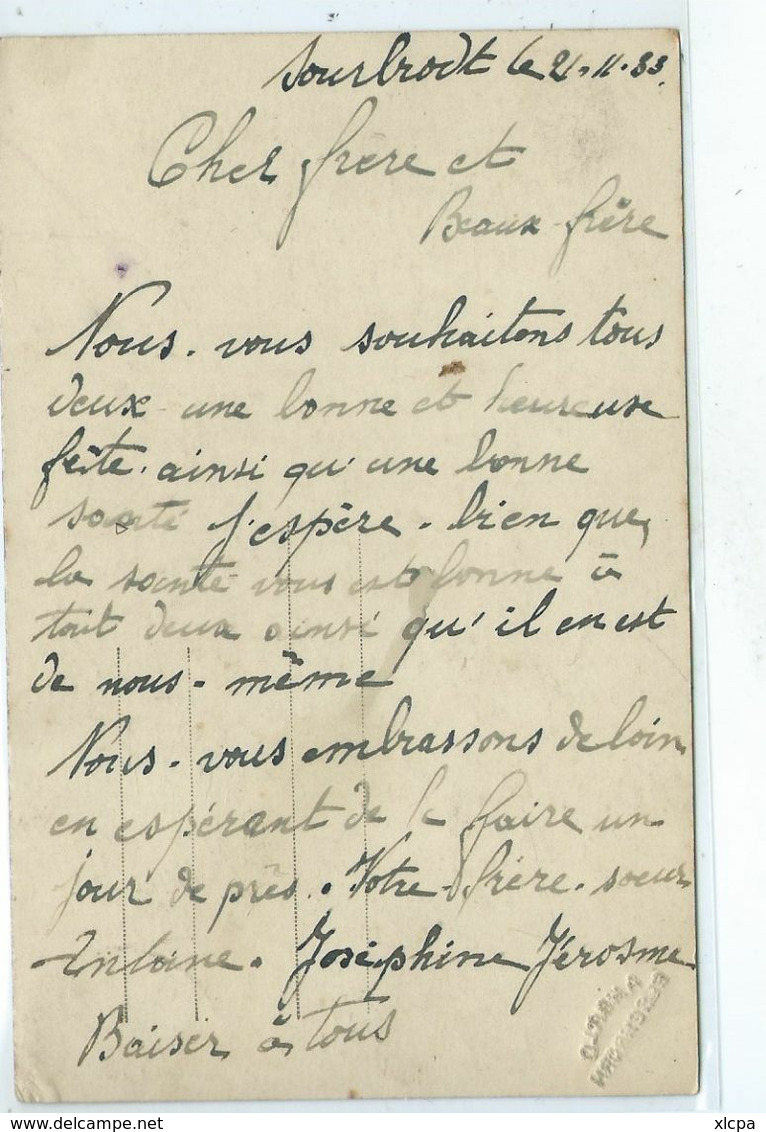 Sourbrodt le 21.11.33.
Cher frère et
Beaux-frère
Nous. vous souhaitons tous
deux une bonne et heureuse
fête. ainsi qu'une bonne
santé J'espère. bien que
la santé vous est bonne à
tout deux ainsi qu'il en est
de nous-même
Nous-vous embrassons de loin
en espérant de le faire un
jour de près. Votre frère. soeur
Antoine. Joséphine Jérosme
Baiser à tous
delcampe.net
xlcpa